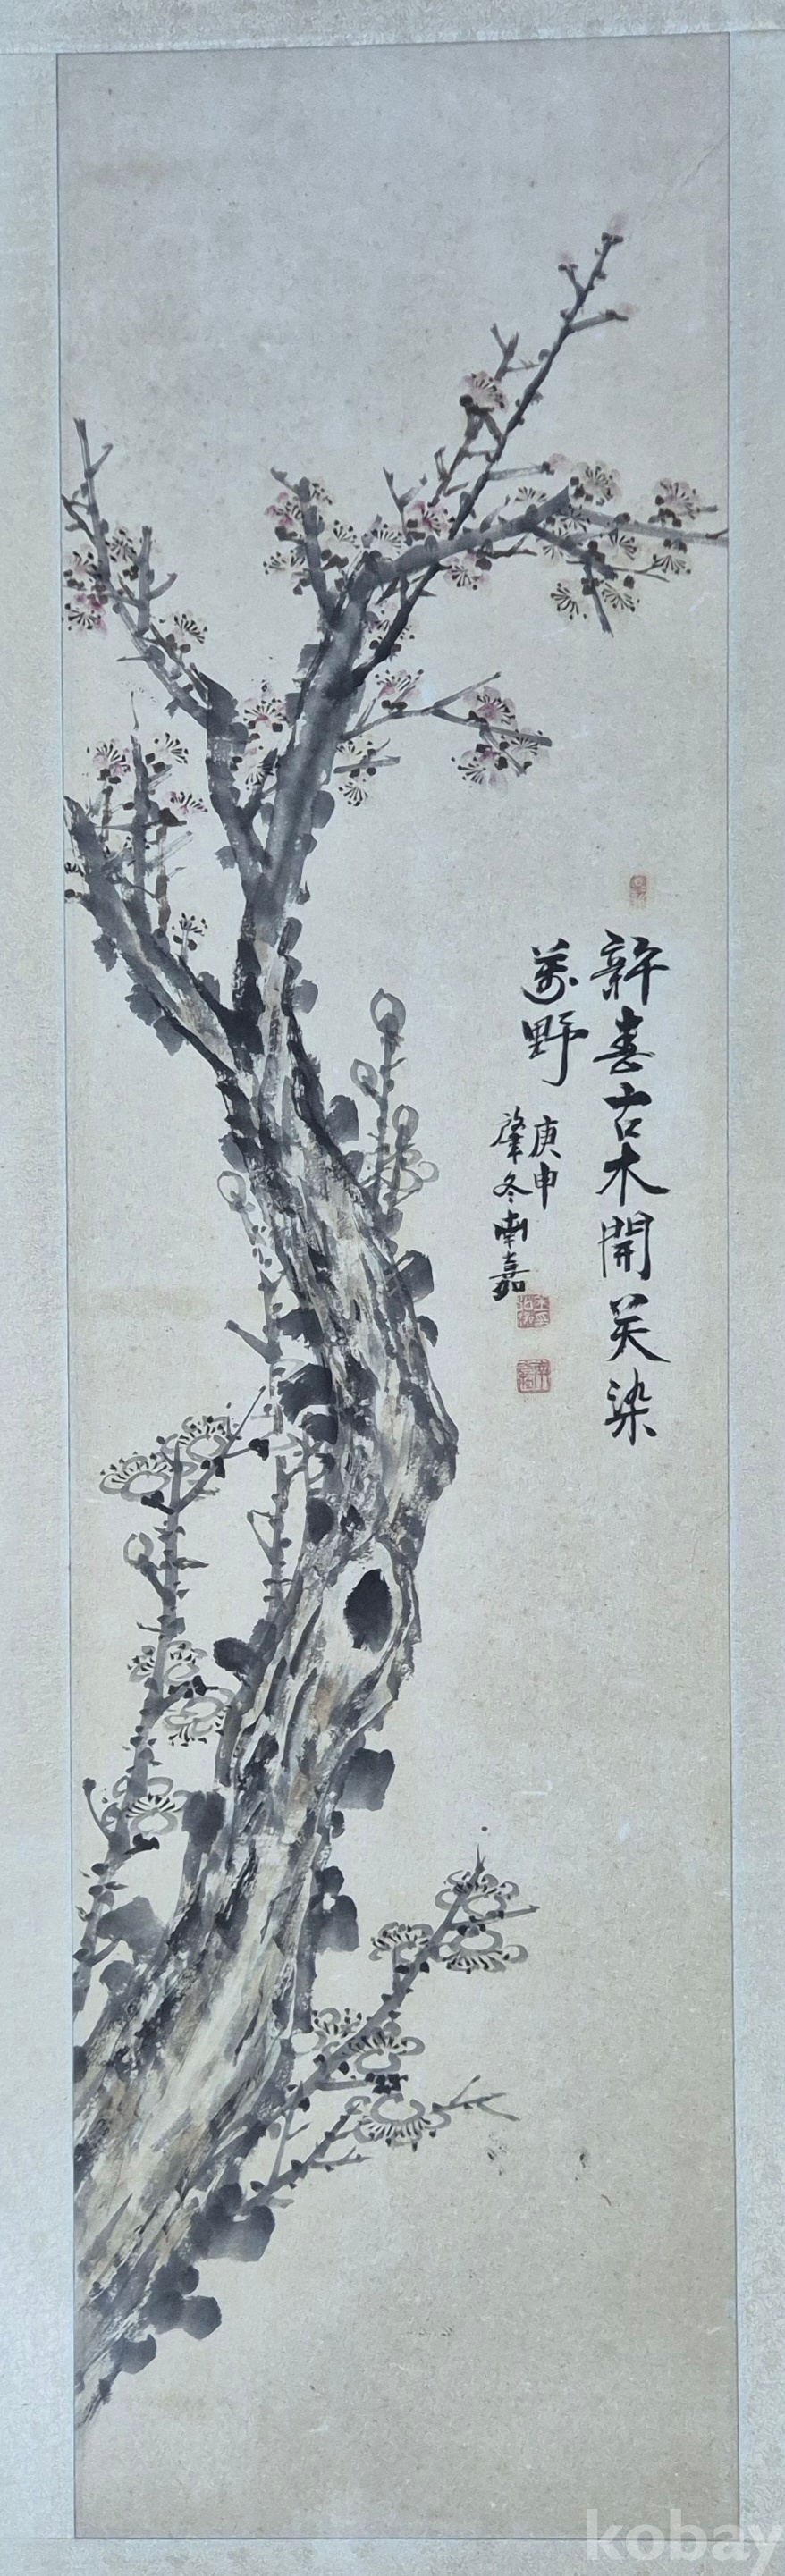 新春古木開笑染
萬野
庚申
肇冬南嘉
kobay